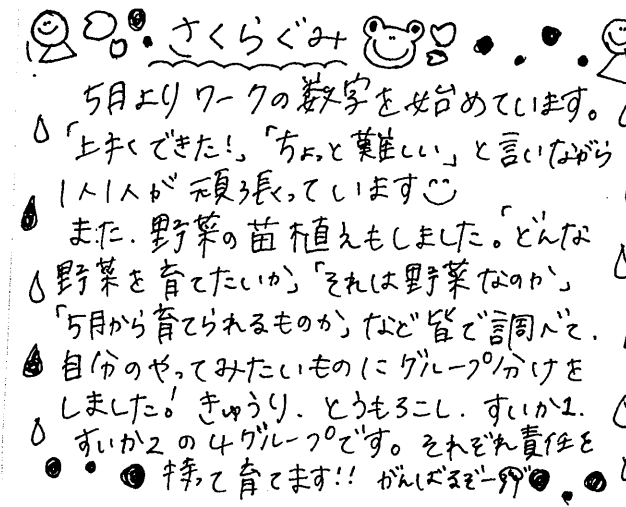 さくらぐみ
5月よりワークの数字を始めています。
「上手くできた!」「ちょっと難しい」と言いながら
1人1人が頑張っています
また、野菜の苗植えもしました。「どんな
野菜を育てたいか」「それは野菜なのか」
「5月から育てられるものか」など皆で調べて、
自分のやってみたいものにグループ分けを
しました!きゅうり、とうもろこし、すいか1、
すいか2の4グループです。それぞれ責任を
持って育てます!!がんばるぞー